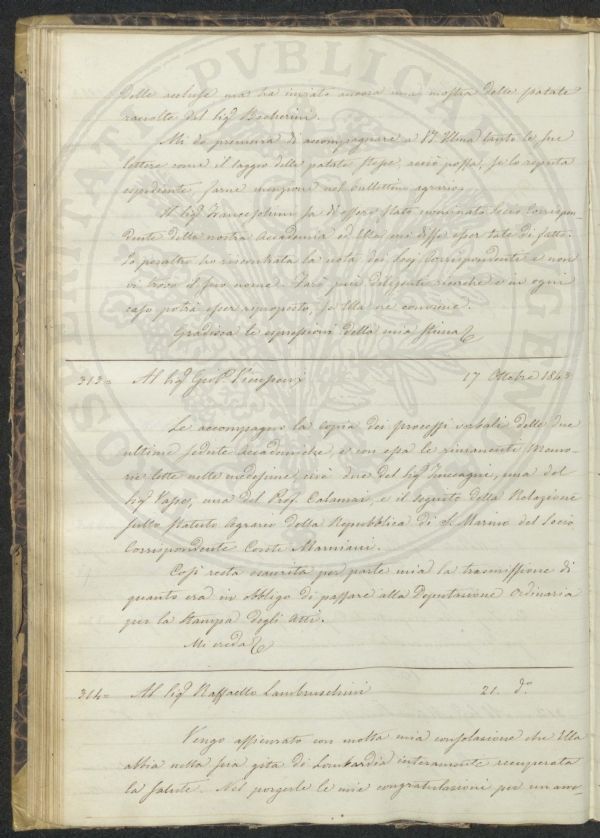 delle accluse ma ha inviato ancora una mostra delle patate
raccolte dal Sig.r Becherini.
Mi do premura di accompagnare a V.S. Illma tanto le sue
lettere come il saggio delle patate stesse, acciò possa, se lo reputa
espediente, farne menzione nel bullettino agrario.
Il Sig.r Franceschini sa di essere stato nominato Socio Corrispon-
dente della nostra Accademia ed Ella mi disse esser tale di fatto.
Io peraltro ho riscontrata la nota dei Sig.i Corrispondenti e non
vi trovo il suo nome. Farò più diligenti ricerche e in ogni
caso potrà esser riproposto, se Ella ne conviene.
Gradisca le espressioni della mia stima
313= Al Sig.r Gio. P. Vieusseux 17 Ottobre 1843
Le accompagno la copia dei processi verbali delle due
ultime sedute accademiche, e con essa le rimanenti Memo-
rie lette nelle medesime, cioè due del Sig.r Zuccagni, una del
Sig.r Passer, una del Prof. Calamai, e il seguito della Relazione
sullo stato agrario della Repubblica di S. Marino del Socio
Corrispondente Conte Mamiani.
Così resta esaurita per parte mia la trasmissione di
quanto era in obbligo di passare alla Deputazione Ordinaria
per la stampa degli Atti.
Mi creda
314= Al Sig.r Raffaello Lambruschini 21. d.o
Vengo assicurato con molta mia consolazione che Ella
abbia nella sua gita di Lombardia interamente recuperata
la salute. Nel porgerle le mie congratulazioni per un avve-
PVBLICAE
PROSPERITATI AVGENDAE